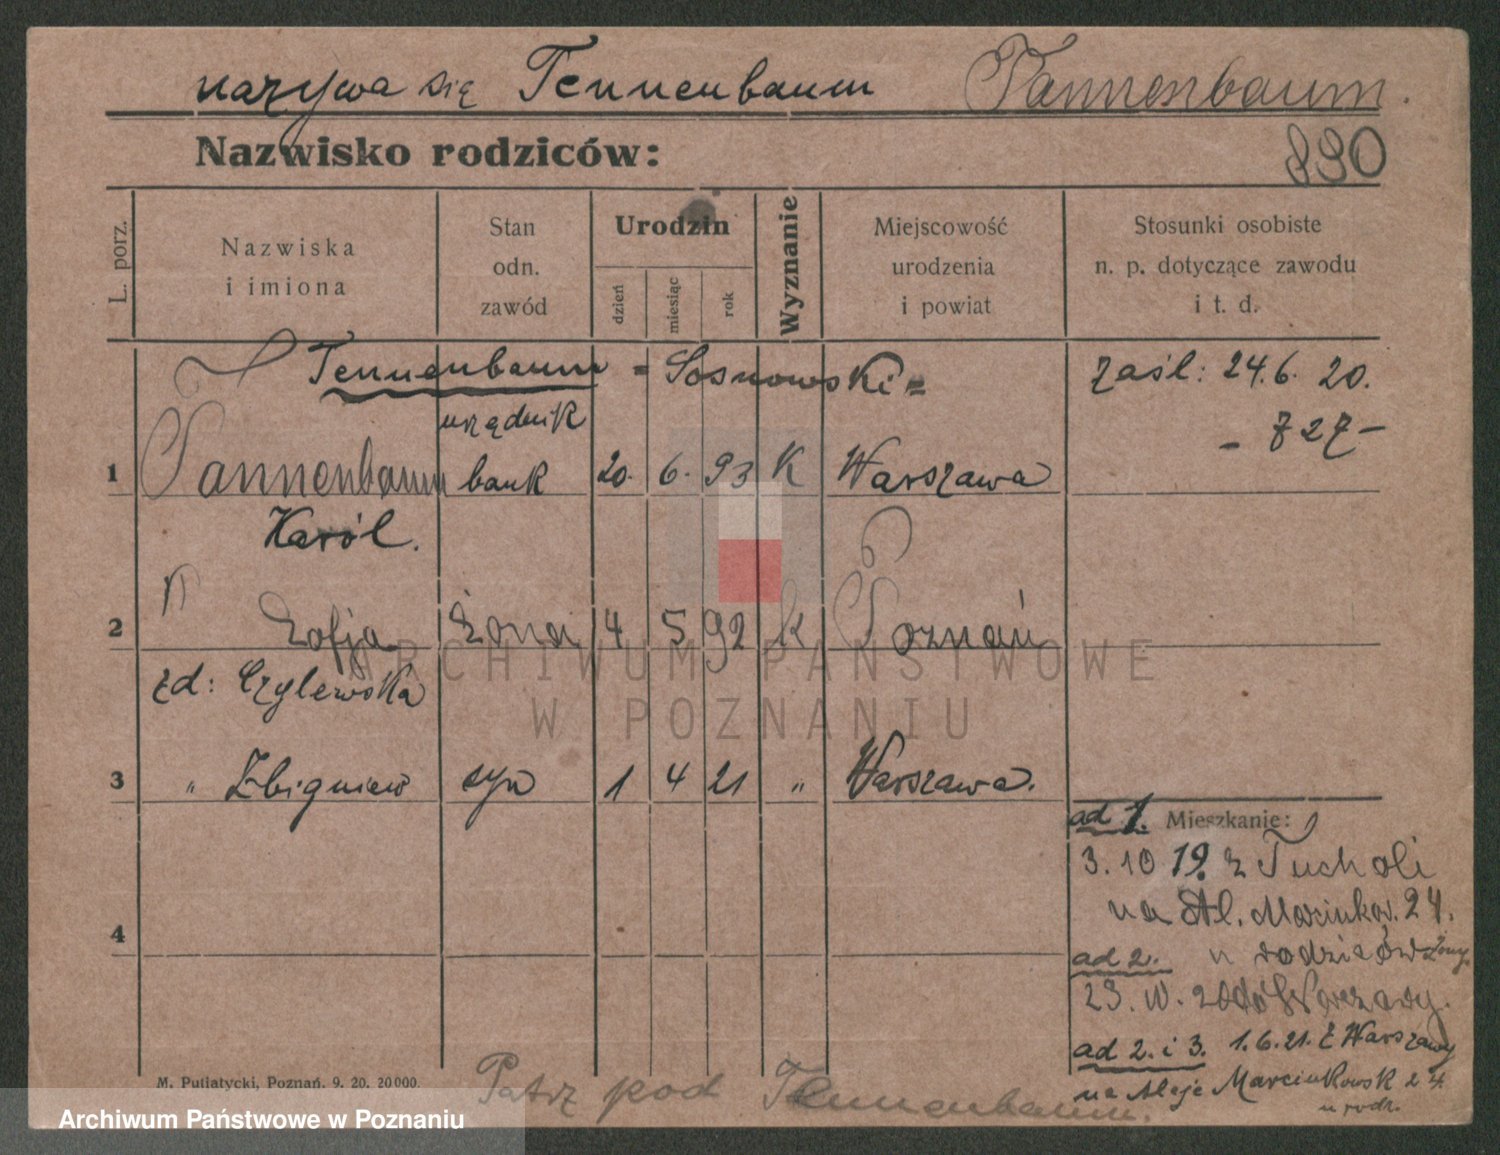 nazywa się Tennenbaum Tannenbaum.
Nazwisko rodziców:
890
L. porz.
Nazwiska
i imiona
Stan
odn.
zawód
Urodzin
dzień
miesiąc
rok
Wyznanie
Miejscowość
urodzenia
i powiat
Stosunki osobiste
n. p. dotyczące zawodu
i t. d.
Tennenbaum = Sosnowski = zaśl: 24.6. 20.
urzędnik
- 727-
1 Tannenbaum bank 20. 6. 93 K Warszawa
Karól.
2 Zofja żona 4 5 92 k Poznań
zd: Czylewska
3 „ Zbigniew syn 1 4 21 „ Warszawa.
ad 1. Mieszkanie:
3. 10 19. z Tucholi
na Al. Marcinkow. 24.
4
u rodziców żony.
ad 2.
23. IV. 20 do Warszawy.
ad 2. i 3. 1.6.21. z Warszawy
na Aleje Marcinkowsk 24
u rodz.
Patrz pod Tennenbaum.
M. Putiatycki, Poznań. 9. 20. 20 000.
ARCHIWUM PAŃSTWOWE
W POZNANIU
Archiwum Państwowe w Poznaniu